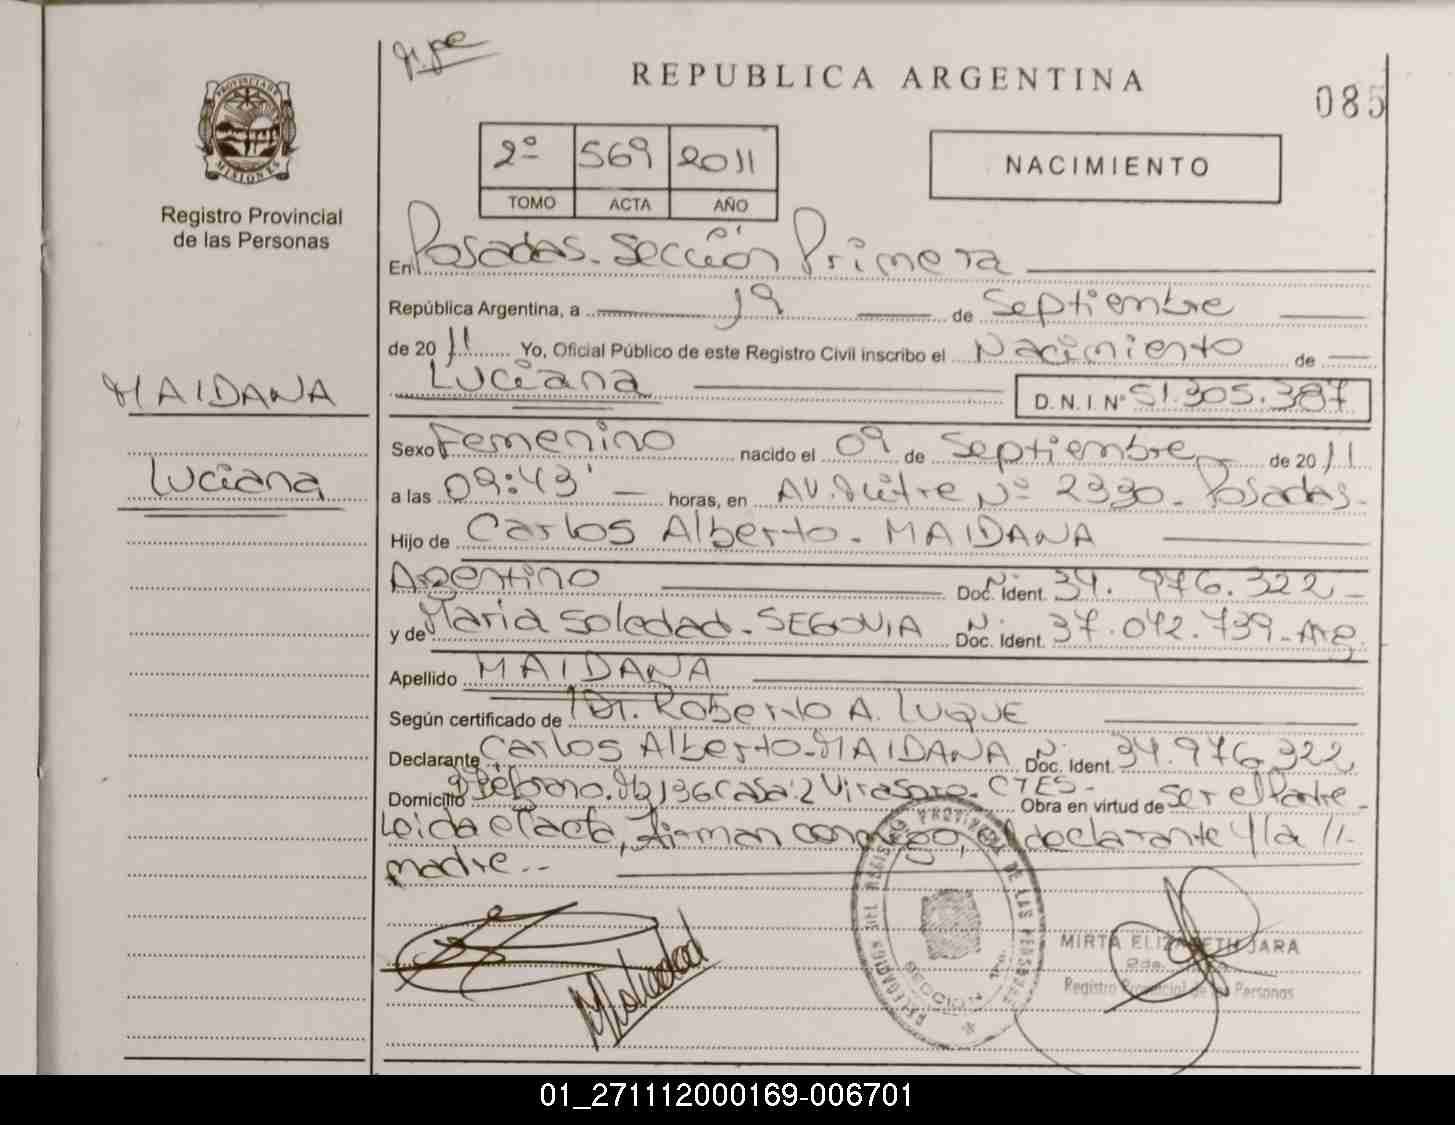 REPUBLICA ARGENTINA
085
2º 569 2011
TOMO ACTA AÑO
NACIMIENTO
PROVINCIA DE MISIONES
Registro Provincial
de las Personas
En Posadas. Sección Primera
República Argentina, a 19 de Septiembre
de 2011 Yo, Oficial Público de este Registro Civil inscribo el Nacimiento de
Luciana D.N.I Nº 51.305.387
MAIDANA
Luciana
Sexo Femenino nacido el 09 de Septiembre de 2011
a las 09:43' horas, en AV. Mitre Nº 2330. Posadas.
Hijo de Carlos Alberto. MAIDANA
Argentino Doc. Ident. 34.976.322
y de Maria Soledad. SEGOVIA Doc. Ident. 37.042.739. Arg
Apellido MAIDANA
Según certificado de Dr. Roberto A. LUQUE
Declarante Carlos Alberto. MAIDANA Doc. Ident. 34.976.322
Domicilio 136 Casa: 2 Virasoro. CTES. Obra en virtud de ser el Padre
Leida el acta, firman conmigo, el declarante y la //
madre..
DELEGACION DEL REGISTRO PROVINCIAL DE LAS PERSONAS
SECCION 1ra.
MIRTA ELIZABETH JARA
2da.
Registro Provincial de las Personas
MSoledad
01_271112000169-006701